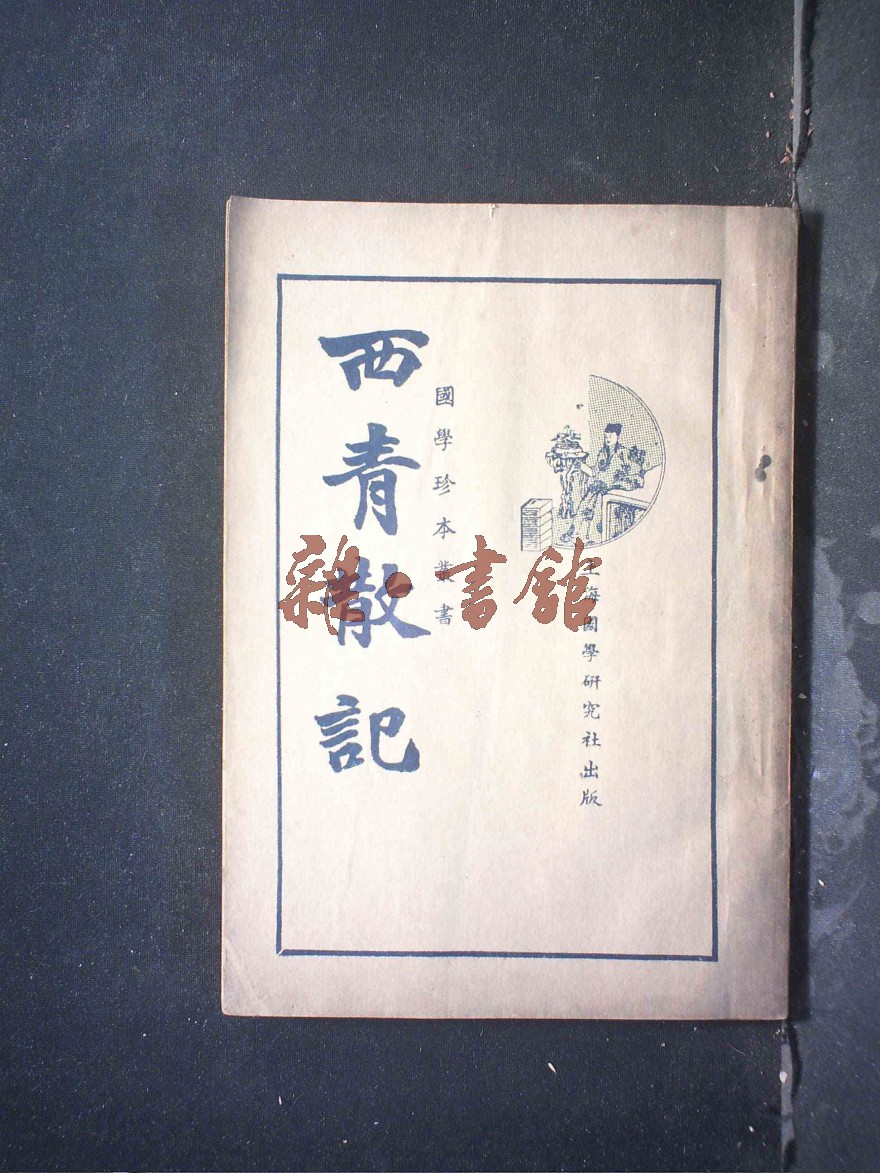 西青散記
國學珍本叢書
上海國學研究社出版
雜·書館